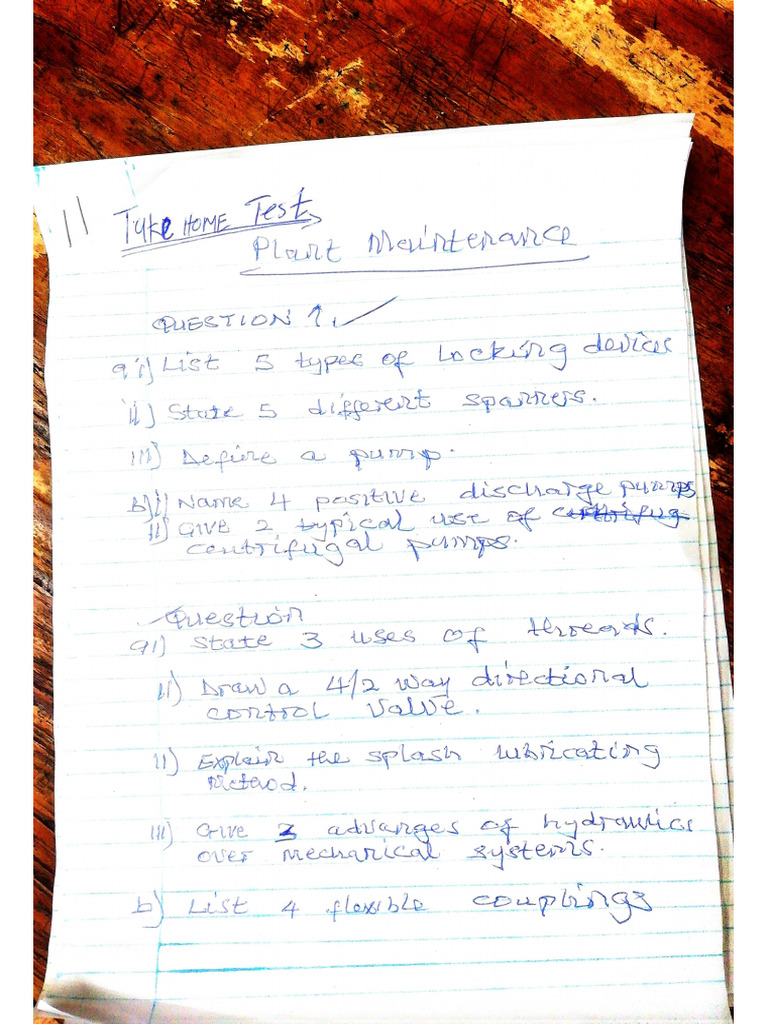 11
Take HOME Test
Plant Maintenance
QUESTION 1.
a i) List 5 types of Locking devices
ii) State 5 different spanners.
iii) Define a pump.
b) i) Name 4 positive discharge pumps
ii) Give 2 typical use of centrifug
centrifugal pumps.
Question
a i) State 3 uses of threads.
ii) Draw a 4/2 way directional
control valve.
ii) Explain the splash lubricating
method.
iii) Give 3 advanges of hydraulics
over mechanical systems.
b) List 4 flexible couplings